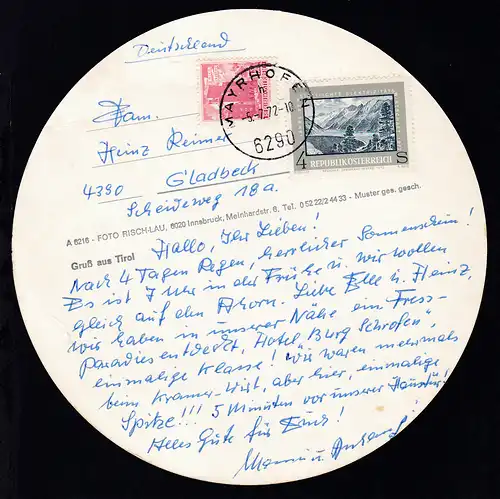 Deutschland
MAYRHOFEN
-5.-7.72-18
6290
4 S
REPUBLIK ÖSTERREICH
Fam.
Heinz Reimer
4390 Gladbeck
Scheideweg 18a.
A 6216 - FOTO RISCH-LAU, 6020 Innsbruck, Meinhardstr. 6, Tel. 0 52 22/2 44 33 - Muster ges. gesch.
Gruß aus Tirol
Hallo, Ihr Lieben!
Nach 4 Tagen Regen, herrlicher Sonnenschein!
Es ist 7 Uhr in der Frühe u. wir wollen
gleich auf den Ahorn. Liebe Elle u. Heinz,
wir haben in unserer Nähe ein Fress-
Paradies entdeckt, Hotel "Burg Schrofen",
einmalige Klasse! Wir waren mehrmals
beim Kramer-Wirt, aber hier, einmalige
Spitze!!! 5 Minuten vor unserer Haustür!
Alles Gute für Euch!
u.